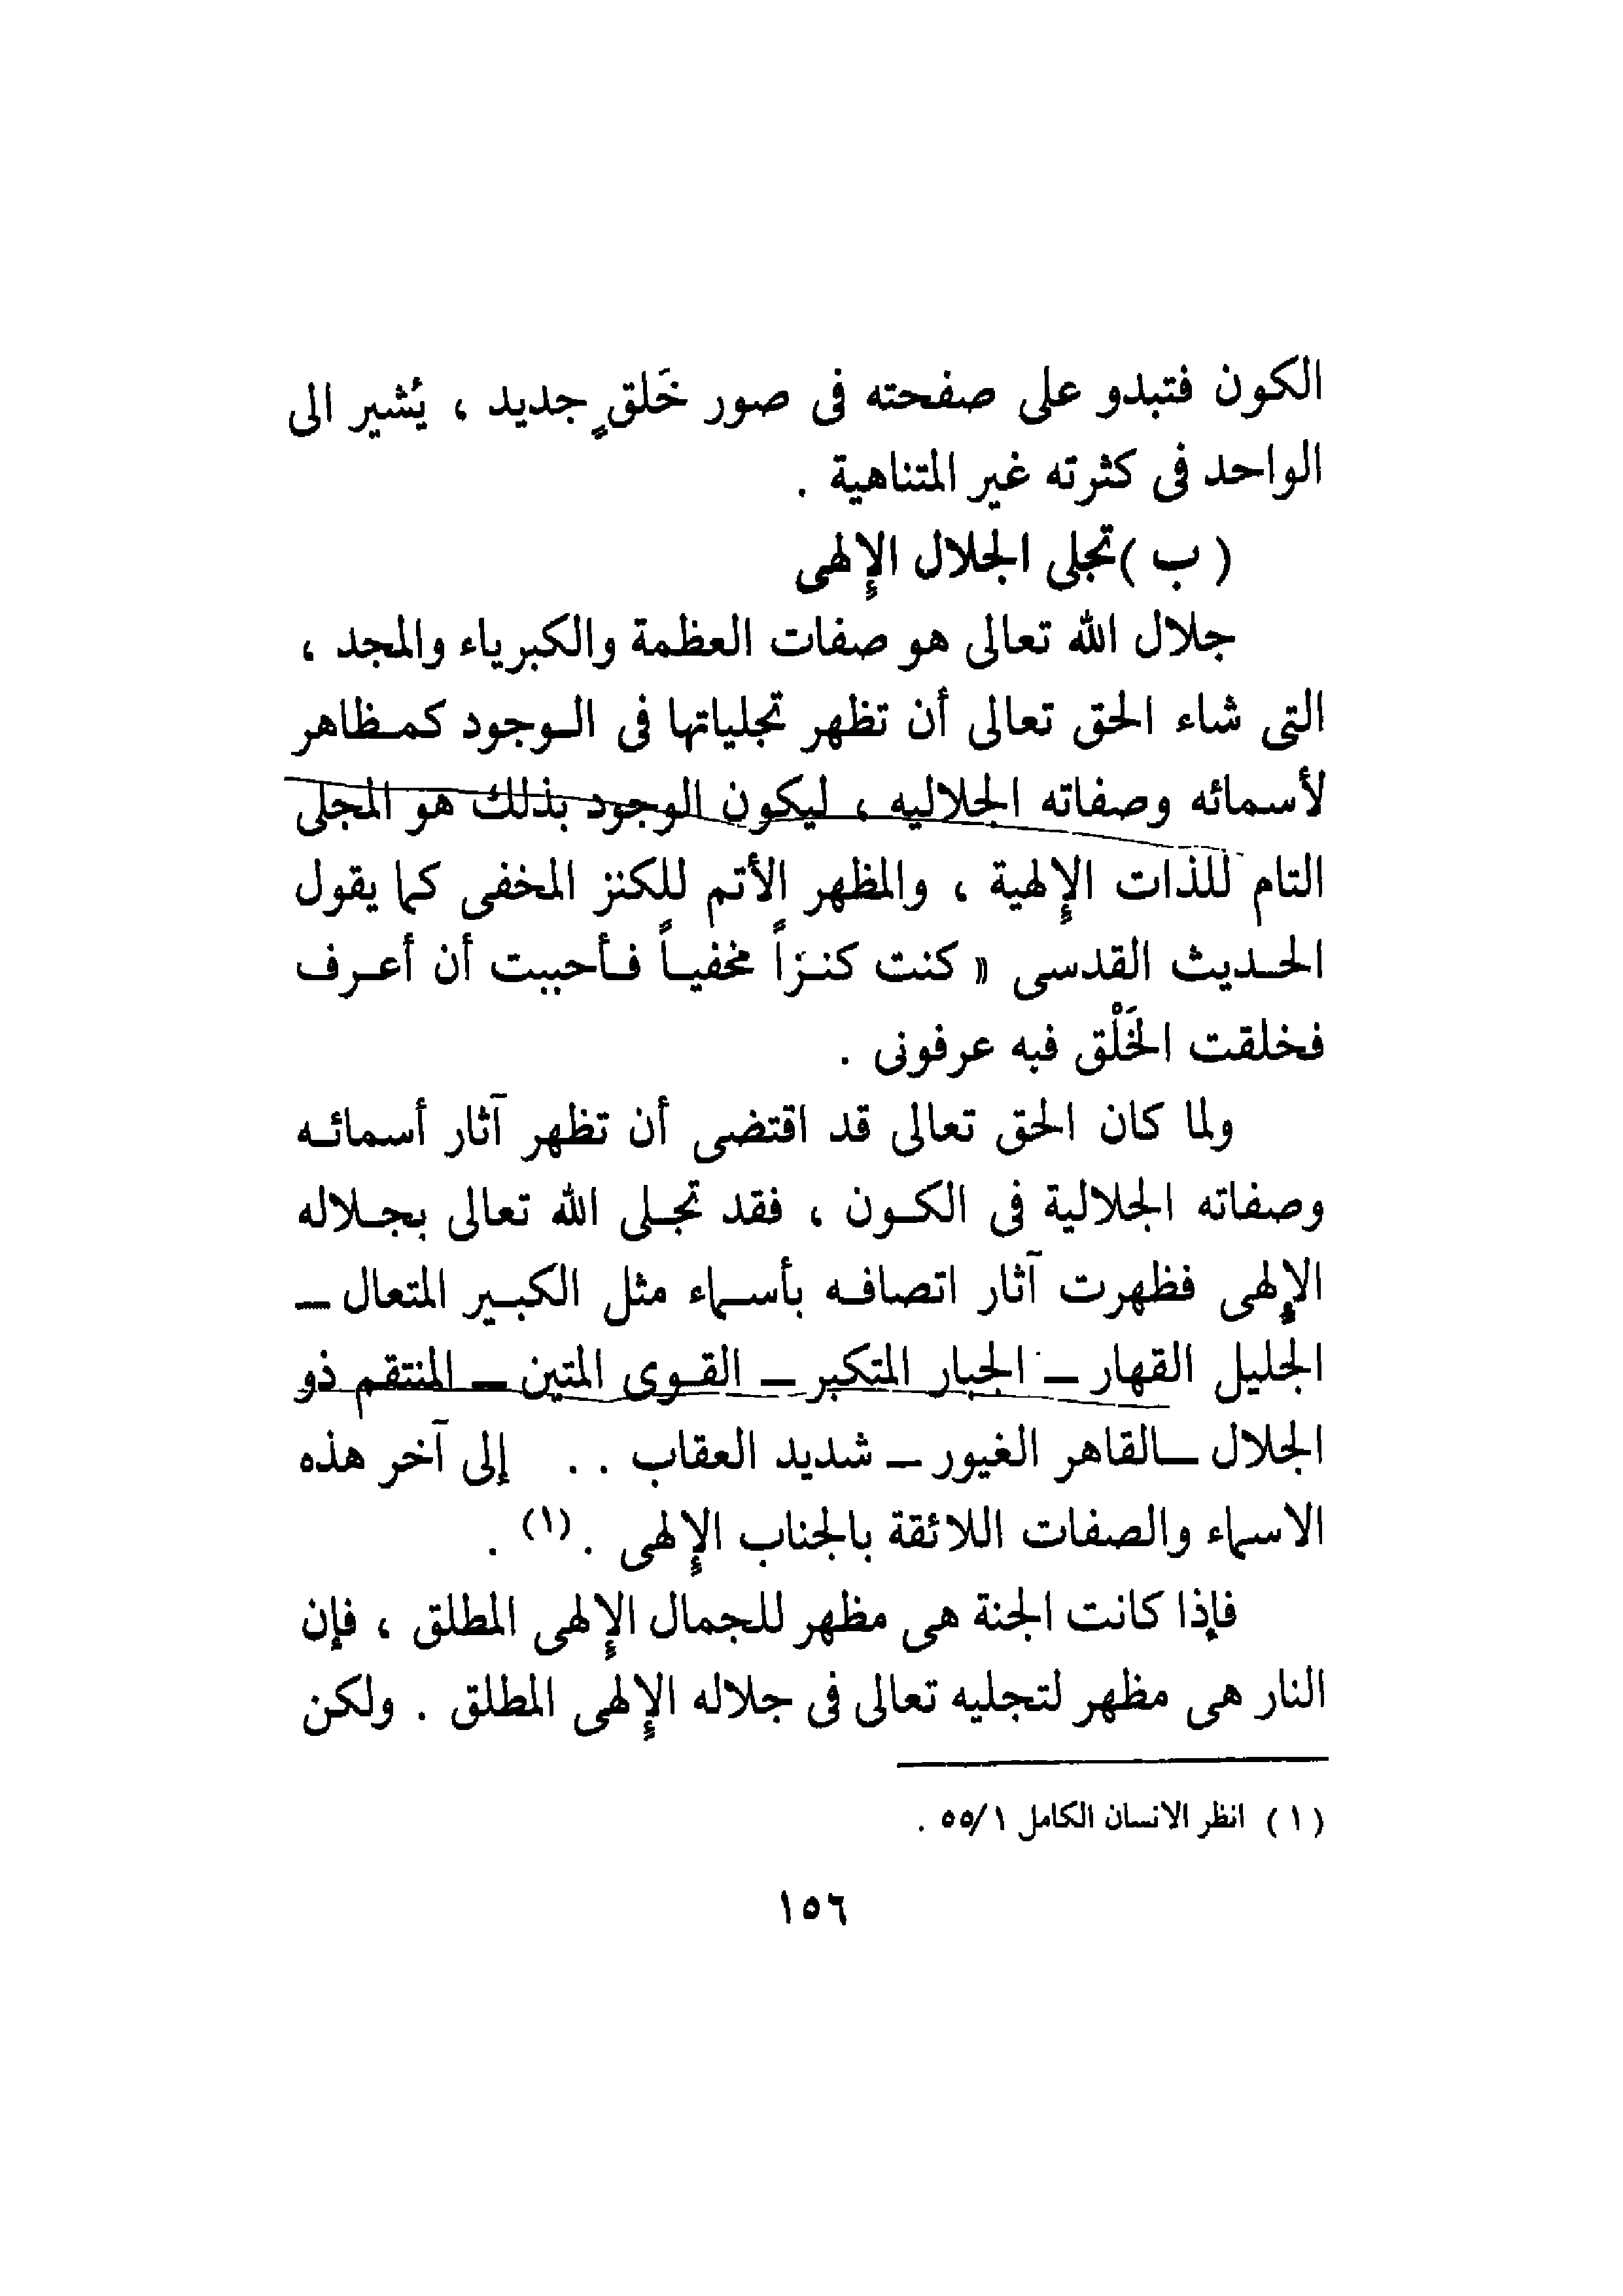 الكون فتبدو على صفحته فى صور خَلقٍ جديد ، يُشير الى
الواحد فى كثرته غير المتناهية .
( ب )تجلى الجلال الإلهى
جلال الله تعالى هو صفات العظمة والكبرياء والمجد ،
التى شاء الحق تعالى أن تظهر تجلياتها فى الـوجود كمـظاهر
لأسمائه وصفاته الجلاليه ، ليكون الوجود بذلك هو المجلى
التام للذات الإلهية ، والمظهر الأتم للكنز المخفى كما يقول
الحـديث القدسى « كنت كنـزاً مخفيـاً فـأحببت أن أعـرف
فخلقت الخَلْق فبه عرفونى .
ولما كان الحق تعالى قد اقتضى أن تظهر آثار أسمائـه
وصفاته الجلالية فى الكـون ، فقد تجـلى الله تعالى بجـلاله
الإلهى فظهرت آثار اتصافـه بأسـماء مثل الكبـير المتعال ــ
الجليل القهار ــ الجبار المتكبر ــ القـوى المتين ــ المنتقم ذو
الجلال ــالقاهر الغيور ــ شديد العقاب . . إلى آخر هذه
الاسماء والصفات اللائقة بالجناب الإلهى .(١) .
فإذا كانت الجنة هى مظهر للجمال الإلهى المطلق ، فإن
النار هى مظهر لتجليه تعالى فى جلاله الإلهى المطلق . ولكن
( ١ ) انظر الانسان الكامل ١/٥٥ .
١٥٦